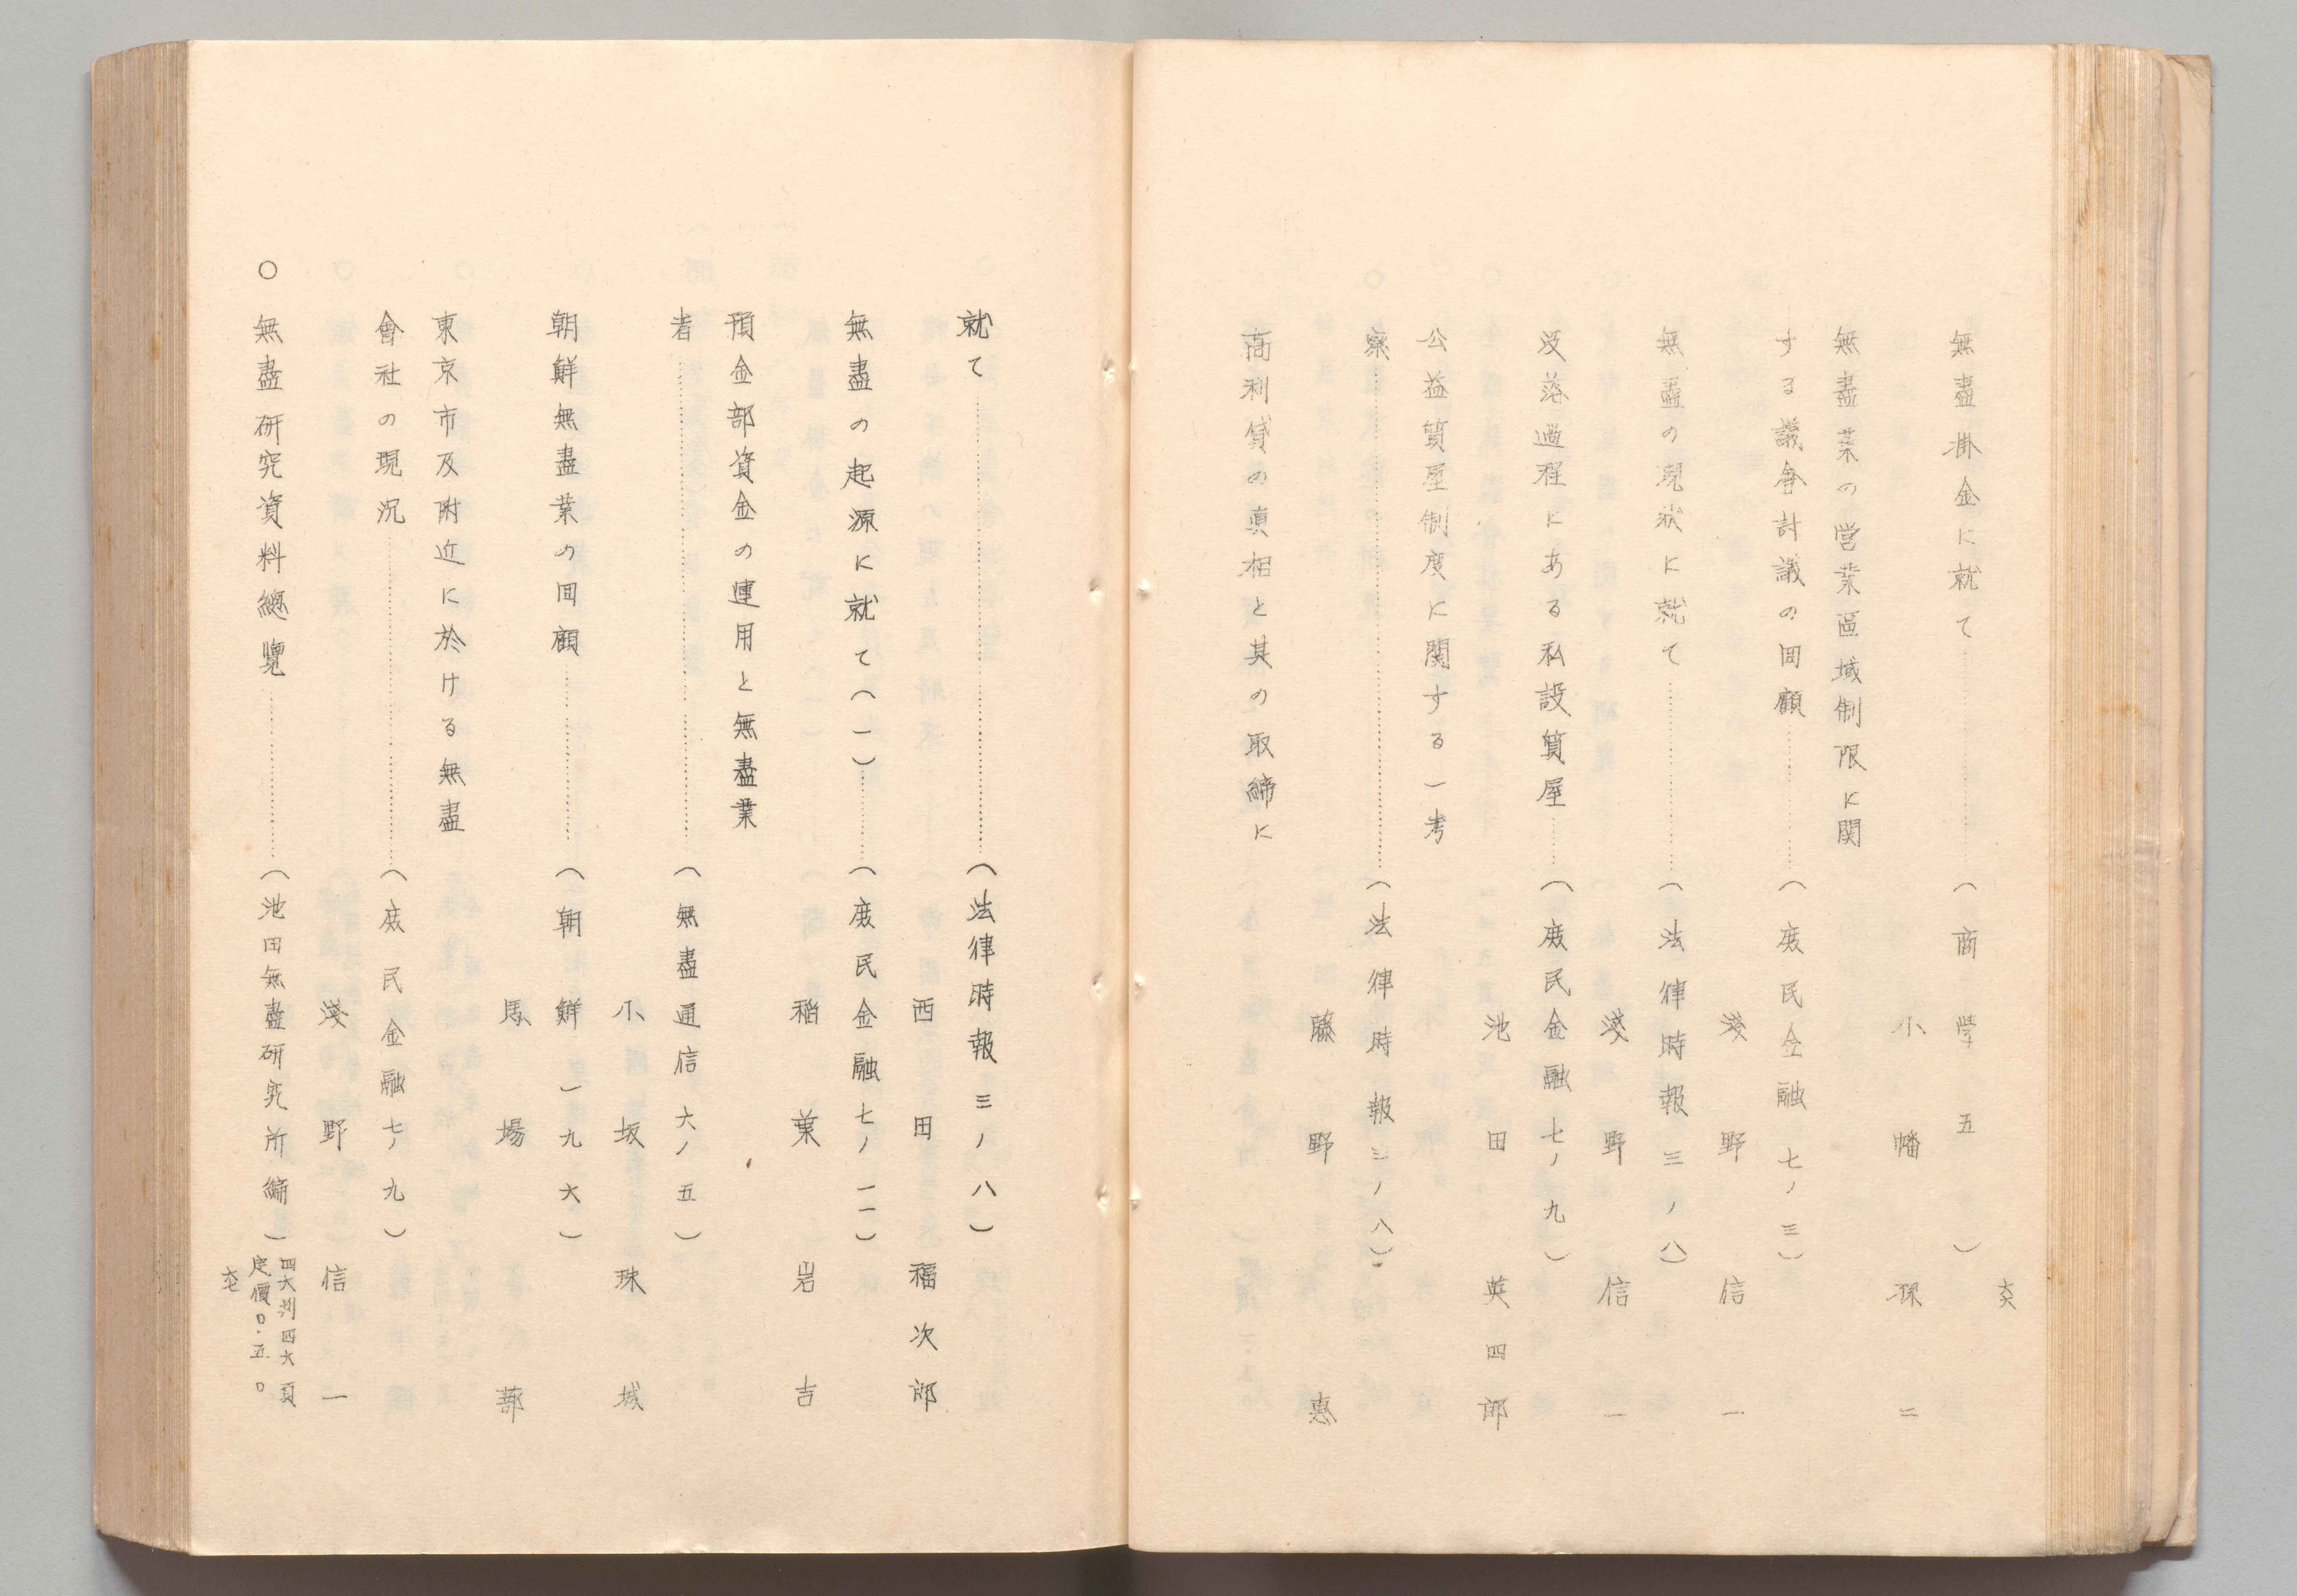 無盡掛金に就て……………（商学五）
小幡孫二
無盡業の営業區域制限に関
する議會討議の回顧…………（庶民金融七ノ三）
淺野信一
無盡の現状に就て……………（法律時報三ノ八）
淺野信一
没落過程にある私設質屋……（庶民金融七ノ九）
池田英四郎
公益質屋制度に関する一考
察……………………………（法律時報三ノ八）
藤野惠
高利貸の真相と其の取締に
就て…………………………（法律時報三ノ八）
西田福次郎
無盡の起源に就て（一）……（庶民金融七ノ一一）
稲葉岩吉
預金部資金の運用と無盡業
者……………………………（無盡通信六ノ五）
小坂珠城
朝鮮無盡業の回顧…………（朝鮮一九六）
馬場蔀
東京市及附近に於ける無盡
會社の現況…………………（庶民金融七ノ九）
淺野信一
○無盡研究資料總覽…………（池田無盡研究所編）
四六判四六頁
定價〇・五〇